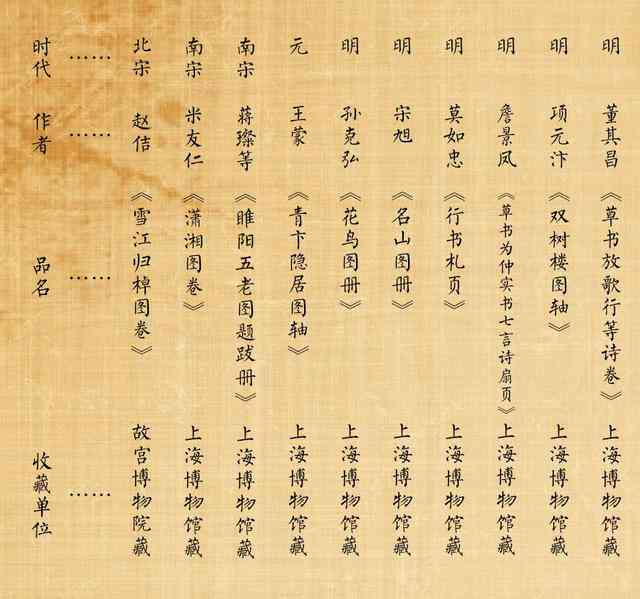 时代 作者 品名 收藏单位
…… …… …… ……
北宋 赵佶 《雪江归棹图卷》 故宫博物院藏
南宋 米友仁 《潇湘图卷》 上海博物馆藏
南宋 蒋璨等 《睢阳五老图题跋册》 上海博物馆藏
元 王蒙 《青卞隐居图轴》 上海博物馆藏
明 孙克弘 《花鸟图册》 上海博物馆藏
明 宋旭 《名山图册》 上海博物馆藏
明 莫如忠 《行书札页》 上海博物馆藏
明 詹景凤 《草书为仲实书七言诗扇页》 上海博物馆藏
明 项元汴 《双树楼图轴》 上海博物馆藏
明 董其昌 《草书放歌行等诗卷》 上海博物馆藏